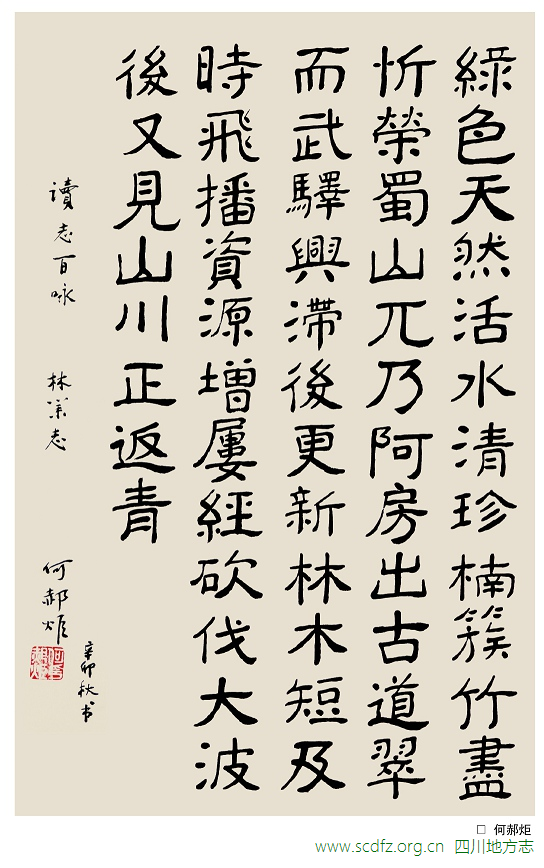 綠色天然活水清珍楠簇竹盡
忻榮蜀山兀乃阿房出古道翠
而武驛興滯後更新林木短及
時飛播資源增屢經砍伐大波
後又見山川正返青
讀志百咏　林業志
何郝炬
辛卯秋书
□ 何郝炬
www.scdfz.org.cn 四川地方志